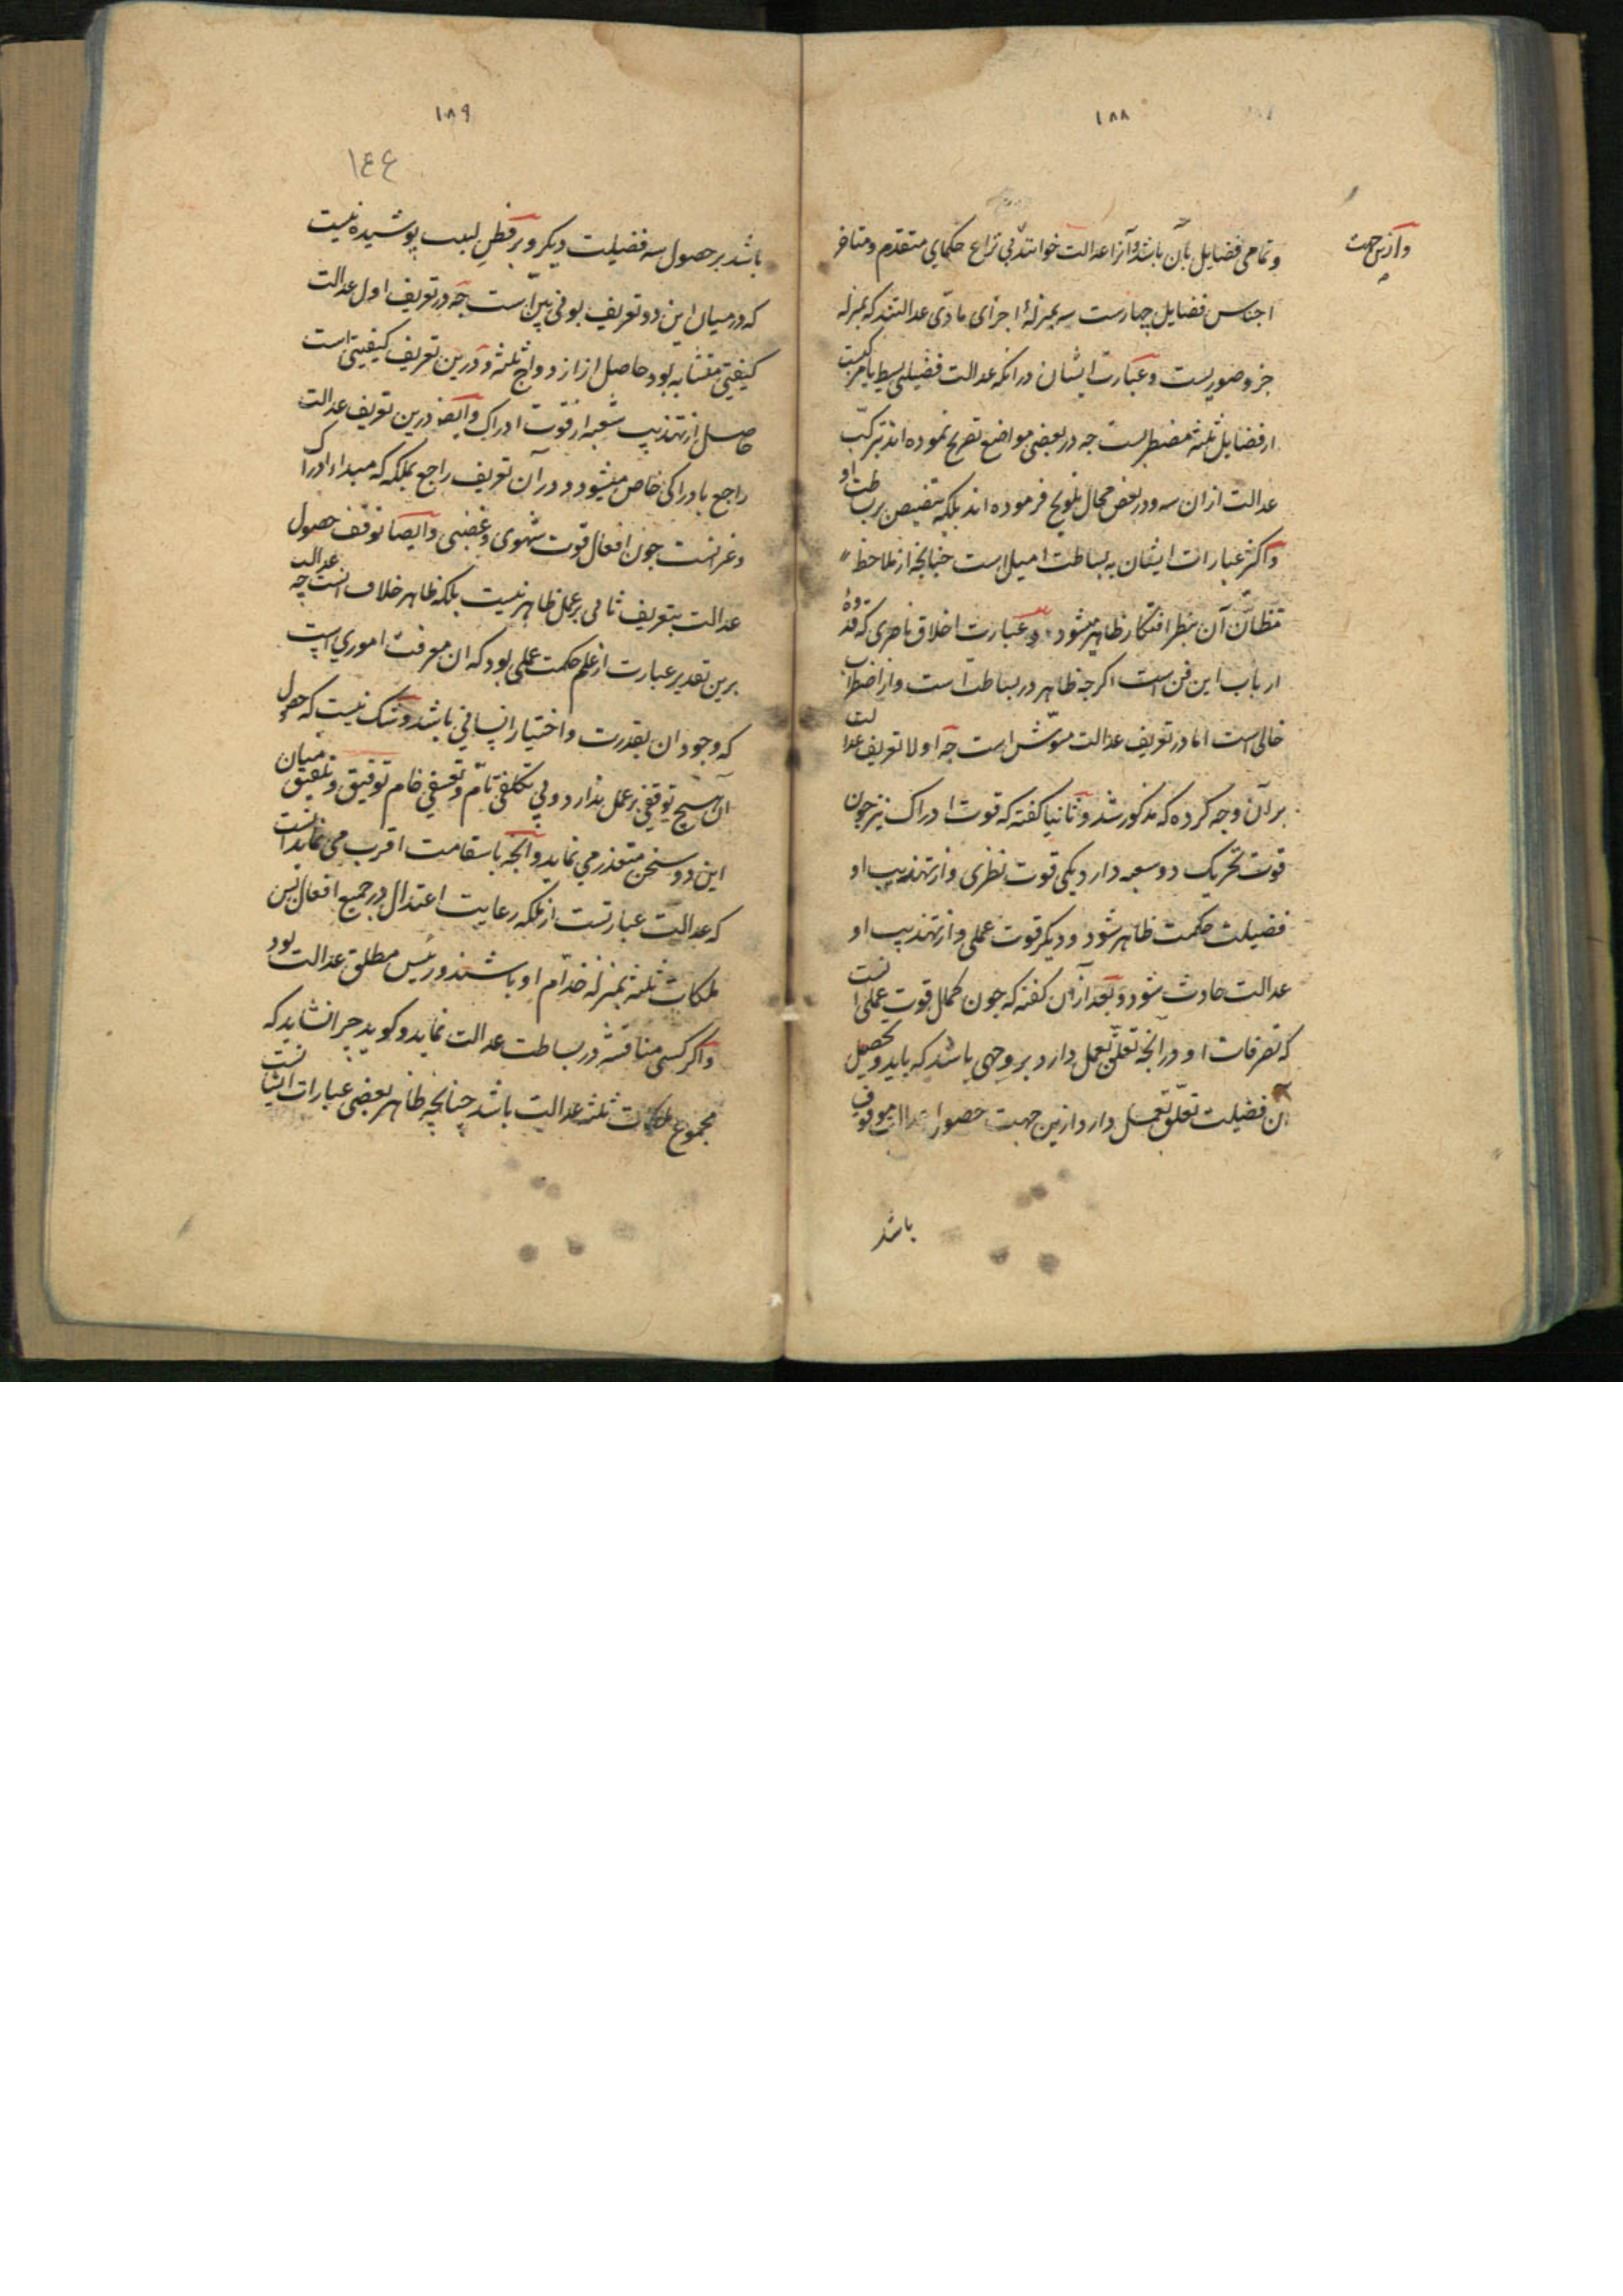 ١٨٨
وازین جهت
و تمامی فضایل بآن باشد و آنرا عدالت خوانند بی نزاع حکمای متقدم و متاخر
اجناس فضایل چهارست سه بمنزلهٔ اجزای مادّی عدالتند که بمنزله
جزو صوریست و عبارت ایشان در انکه عدالت فضیلتی بسیط یا مرکبست
از فضایل ثلثه مضطربست جه در بعضی مواضع تصریح نموده اند بترکّب
عدالت ازان سه و در بعض محال تلویح فرموده اند بلکه تنصیص بر بساطت او
و اکثر عبارات ایشان به بساطت امیل است چنانچه از ملاحظهٔ
مظانّ آن بنظر افتکار ظاهر میشود و عبارت اخلاق ناصری که قدوهٔ
ارباب این فن است اکرچه ظاهر در بساطت است و از اضطراب
خالی است اما در تعریف عدالت مشوّش است جه اولا تعریف عدالت
بر آن وجه کرده که مذکور شد و ثانیا کفته که قوت ادراک نیز چون
قوت تحریک دو شعبه دارد یکی قوت نظری و از تهذیب او
فضیلت حکمت ظاهر شود و دیگر قوت عملی و از تهذیب او
عدالت حادث شود و بعد ازان کفته که چون کمال قوت عملی آنست
که تصرفات او در آنچه تعلّق بعمل دارد بر وجهی باشد که باید و تحصیل
آن فضیلت تعلّق بعمل دارد ازین جهت حصول عدالت موقوف
باشد
١٨٩
١٤٤
باشد بر حصول سه فضیلت دیکر و بر فطن لبیب پوشیده نیست
که در میان این دو تعریف بونی بیّن است چه در تعریف اول عدالت
کیفیتی متشابه بود حاصل از ازدواج ثلثه و درین تعریف کیفیتی است
حاصل از تهذیب شعبه از قوت ادراک و ایضا درین تعریف عدالت
راجع بادراکی خاص میشود و در آن تعریف راجع بملکه که مبداء ادراک
و غیرانست چون افعال قوت شهوی و غضبی و ایضا توقف حصول
عدالت بتعریف ثانی بر عمل ظاهر نیست بلکه ظاهر خلاف انست چه عدالت
برین تقدیر عبارت از علم حکمت عملی بود که ان معرفت اموری است
که وجود ان بقدرت و اختیار انسانی باشد و شک نیست که حصول
ان هیچ توقفی بر عمل ندارد و بی تکلفی تامّ و تعسفی خام توفیق و تلفیق میان
این دو سخن متعذر می نماید و آنچه باستقامت اقرب می نماید انست
که عدالت عبارتست از ملکه رعایت اعتدال در جمیع افعال پس
ملکات ثلثه بمنزلهٔ خدّام او باشند و رئیس مطلق عدالت بود
و اکر کسی مناقشه در بساطت عدالت نماید و کوید چرا نشاید که
مجموع ملکات ثلثه عدالت باشد چنانچه ظاهر بعضی عبارات ایشانست